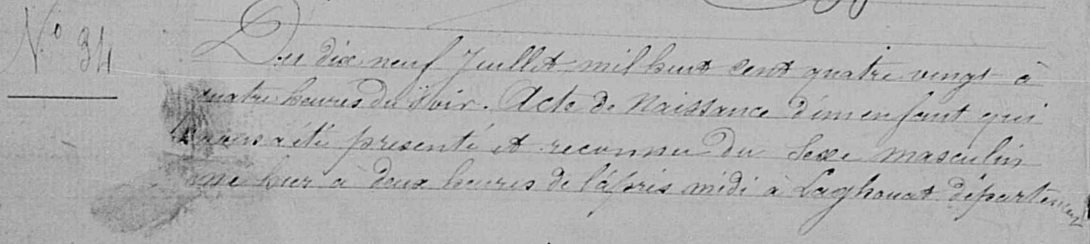 N° 34
Du dix neuf Juillet mil huit cent quatre vingt à
quatre heures du soir. Acte de Naissance d'un enfant qui
nous a été présenté et reconnu du Sexe masculin
né hier à deux heures de l'après midi à Laghouat département